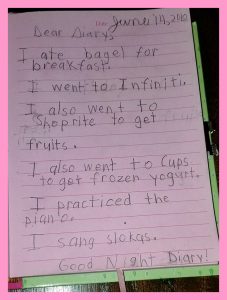 June 14,
Dear Diary,
I ate bagel for
breakfast.
I went to Infiniti.
I also went to
Shoprite to get
fruits.
I also went to Cups
to get frozen yogurt.
I practiced the
piano.
I sang slokas.
Good Night Diary!